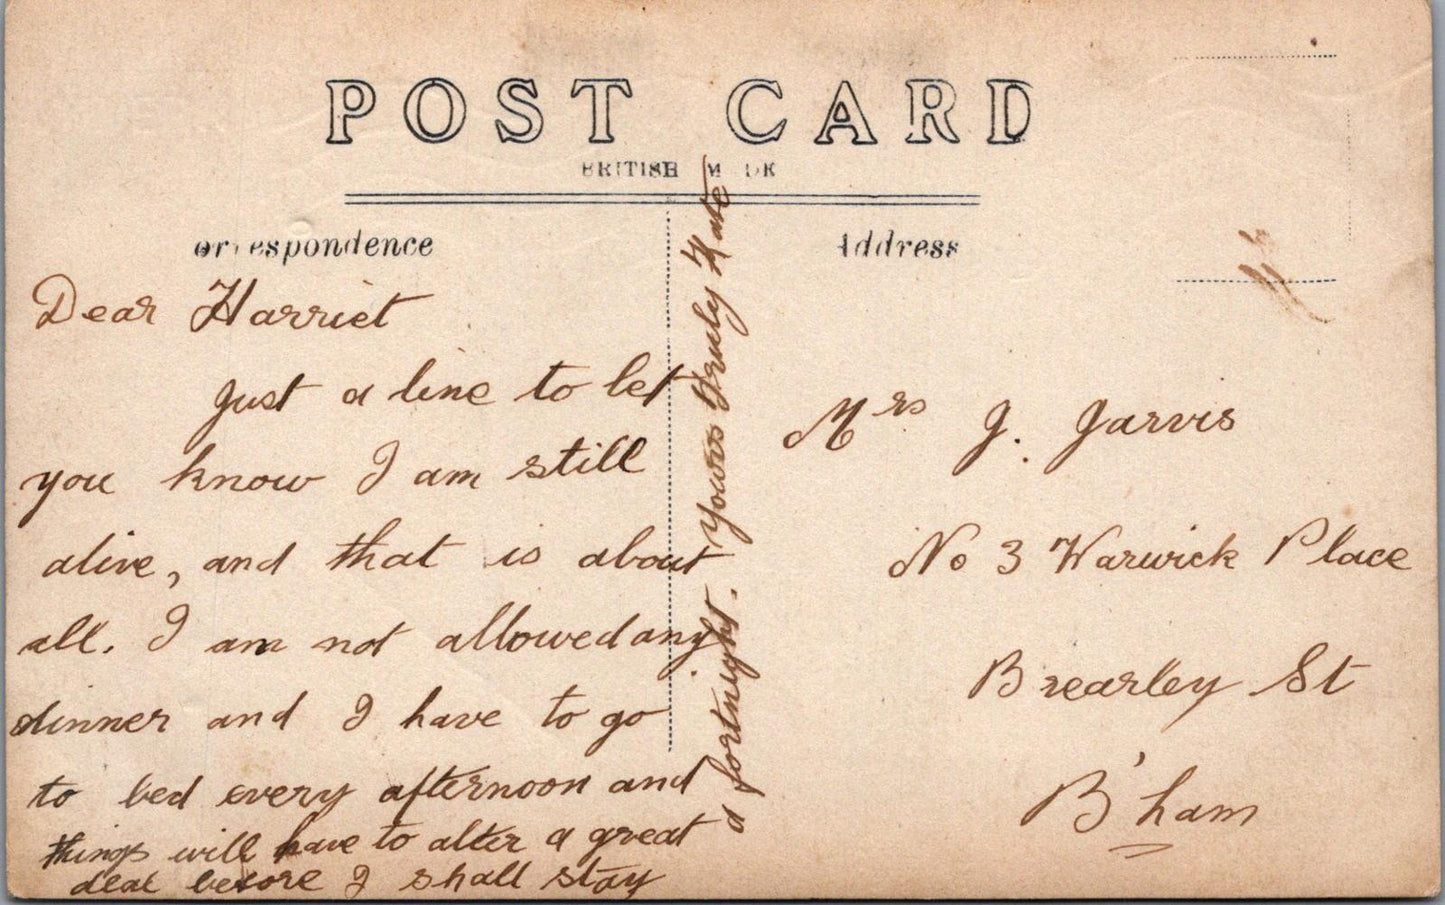 POST CARD
BRITISH M DK
orrespondence
Address
Dear Harriet
Just a line to let
you know I am still
alive, and that is about
all. I am not allowed any
dinner and I have to go
to bed every afternoon and
things will have to alter a great
deal before I shall stay
a fortnight. Yours Truly Kate
Mrs J. Jarvis
No 3 Warwick Place
Brearley St
B'ham